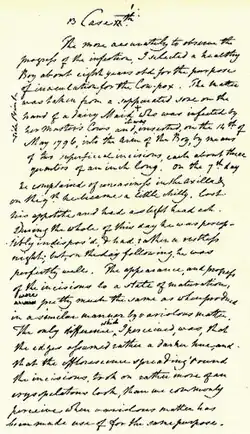 B Case XVII th
The more accurately to observe the
progress of the infection, I selected a healthy
Boy about eight years old for the purpose
of inoculation for the Cow-pox. The matter
was taken from a suppurated sore on the
hand of a dairy Maid who was infected by
her Master's Cows and inserted, on the 14th of
May 1796, into the arm of the Boy, by means
of two superficial incisions, each about three
quarters of an inch long. On the 7th day
he complained of uneasiness in the axilla &
on the 9th he became a little chilly, lost
his appetite, and had a slight head ach.
During the whole of this day he was percep-
tibly indispos'd, & had rather a restless
night; but, on the day following, he was
perfectly well. The appearance, and progress
of the incisions to a state of maturation,
were pretty much the same as when produced
in a similar manner by variolous matter.
The only difference which I perceived, was, that
the edges assumed rather a darker hue, and
that the efflorescence spreading round
the incisions, took on rather more of an
erysipelatous look, than we commonly
perceive when variolous matter has
been made use of for the same purpose.